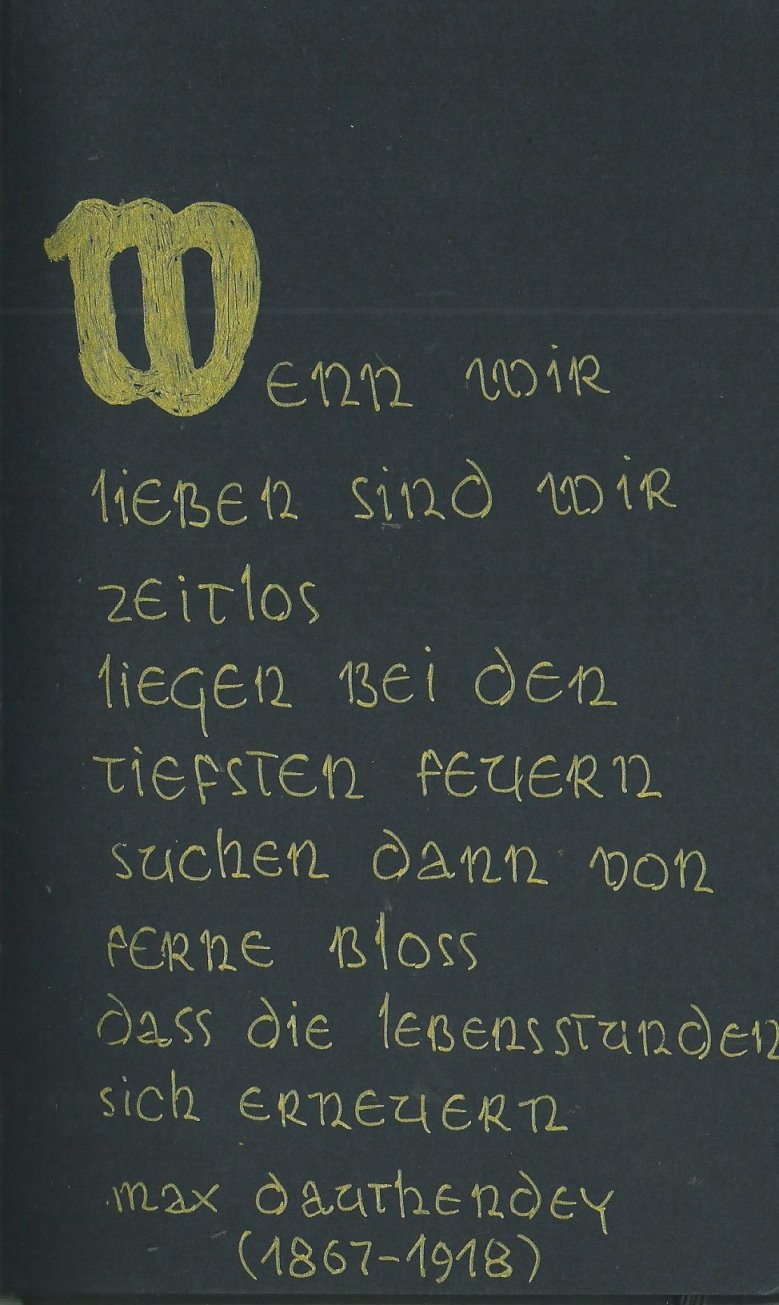 Wenn wir
lieben sind wir
zeitlos
liegen bei den
tiefsten feuern
suchen dann von
ferne bloss
dass die lebensstunden
sich erneuern
max dauthendey
(1867-1918)